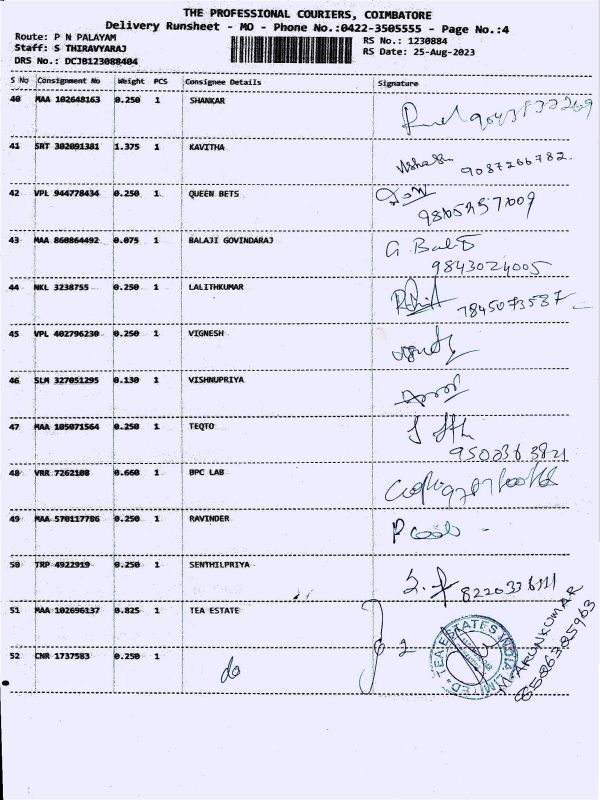 THE PROFESSIONAL COURIERS, COIMBATORE
Delivery Runsheet - MO - Phone No.:0422-3505555 - Page No.:4
Route: P N PALAYAM
RS No.: 1230884
Staff: S THIRAVYARAJ
RS Date: 25-Aug-2023
DRS No.: DCJB123088404
S No Consignment No Weight PCS Consignee Details Signature
40 MAA 102648163 0.250 1 SHANKAR
41 SRT 302091381 1.375 1 KAVITHA
9087266782
42 VPL 944778434 0.250 1 QUEEN BETS
43 MAA 860864492 0.075 1 BALAJI GOVINDARAJ G Balaji
9843024005
44 NKL 3238755 0.250 1 LALITHKUMAR
7845073537
45 VPL 402796230 0.250 1 VIGNESH
46 SLM 327051295 0.130 1 VISHNUPRIYA
47 MAA 105071564 0.250 1 TEQTO
48 VRR 7262108 0.660 1 BPC LAB
49 MAA 570117786 0.250 1 RAVINDER
50 TRP 4922919 0.250 1 SENTHILPRIYA
51 MAA 102696137 0.825 1 TEA ESTATE
TEA ESTATES INDIA LIMITED
M. ARUNKUMAR
52 CNR 1737583 0.250 1 do